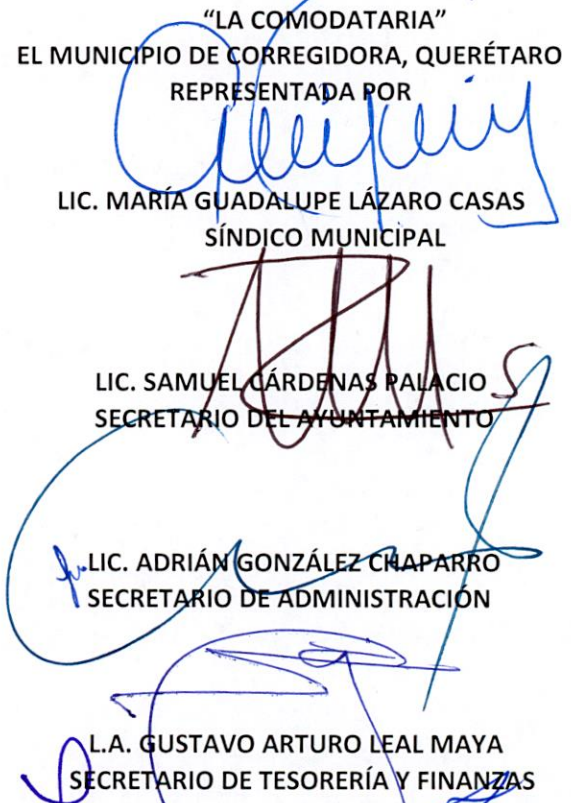 “LA COMODATARIA”
EL MUNICIPIO DE CORREGIDORA, QUERÉTARO
REPRESENTADA POR
LIC. MARÍA GUADALUPE LÁZARO CASAS
SÍNDICO MUNICIPAL
LIC. SAMUEL CÁRDENAS PALACIO
SECRETARIO DEL AYUNTAMIENTO
LIC. ADRIÁN GONZÁLEZ CHAPARRO
SECRETARIO DE ADMINISTRACIÓN
L.A. GUSTAVO ARTURO LEAL MAYA
SECRETARIO DE TESORERÍA Y FINANZAS